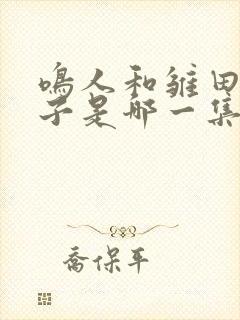 鸣人和雏田
子是哪一集
乔保平